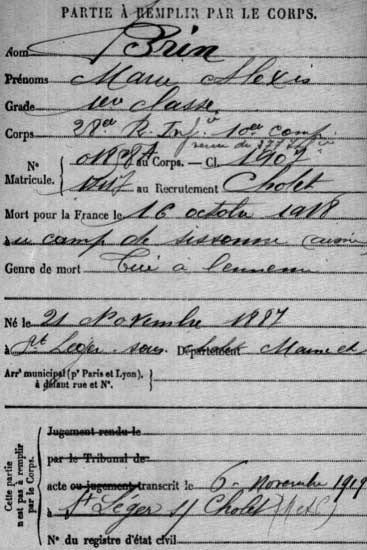 PARTIE À REMPLIR PAR LE CORPS.
Nom Brin
Prénoms Marie Alexis
Grade 1ere classe
Corps 28e R. Inf ie 10e comp
venu du 377
N° Matricule. au Corps. — Cl. 1907
au Recrutement Cholet
Mort pour la France le 16 octobre 1918
à au camp de sissonne (aisne)
Genre de mort Tué à l'ennemi
Né le 21 Novembre 1887
à St Léger sous cholet Département Maine et
Arrt municipal (pr Paris et Lyon), à défaut rue et N°.
Cette partie n'est pas à remplir par le Corps.
Jugement rendu le
par le Tribunal de
acte ou jugement transcrit le 6 novembre 1919
à St Léger s/ Cholet (M et L)
N° du registre d'état civil